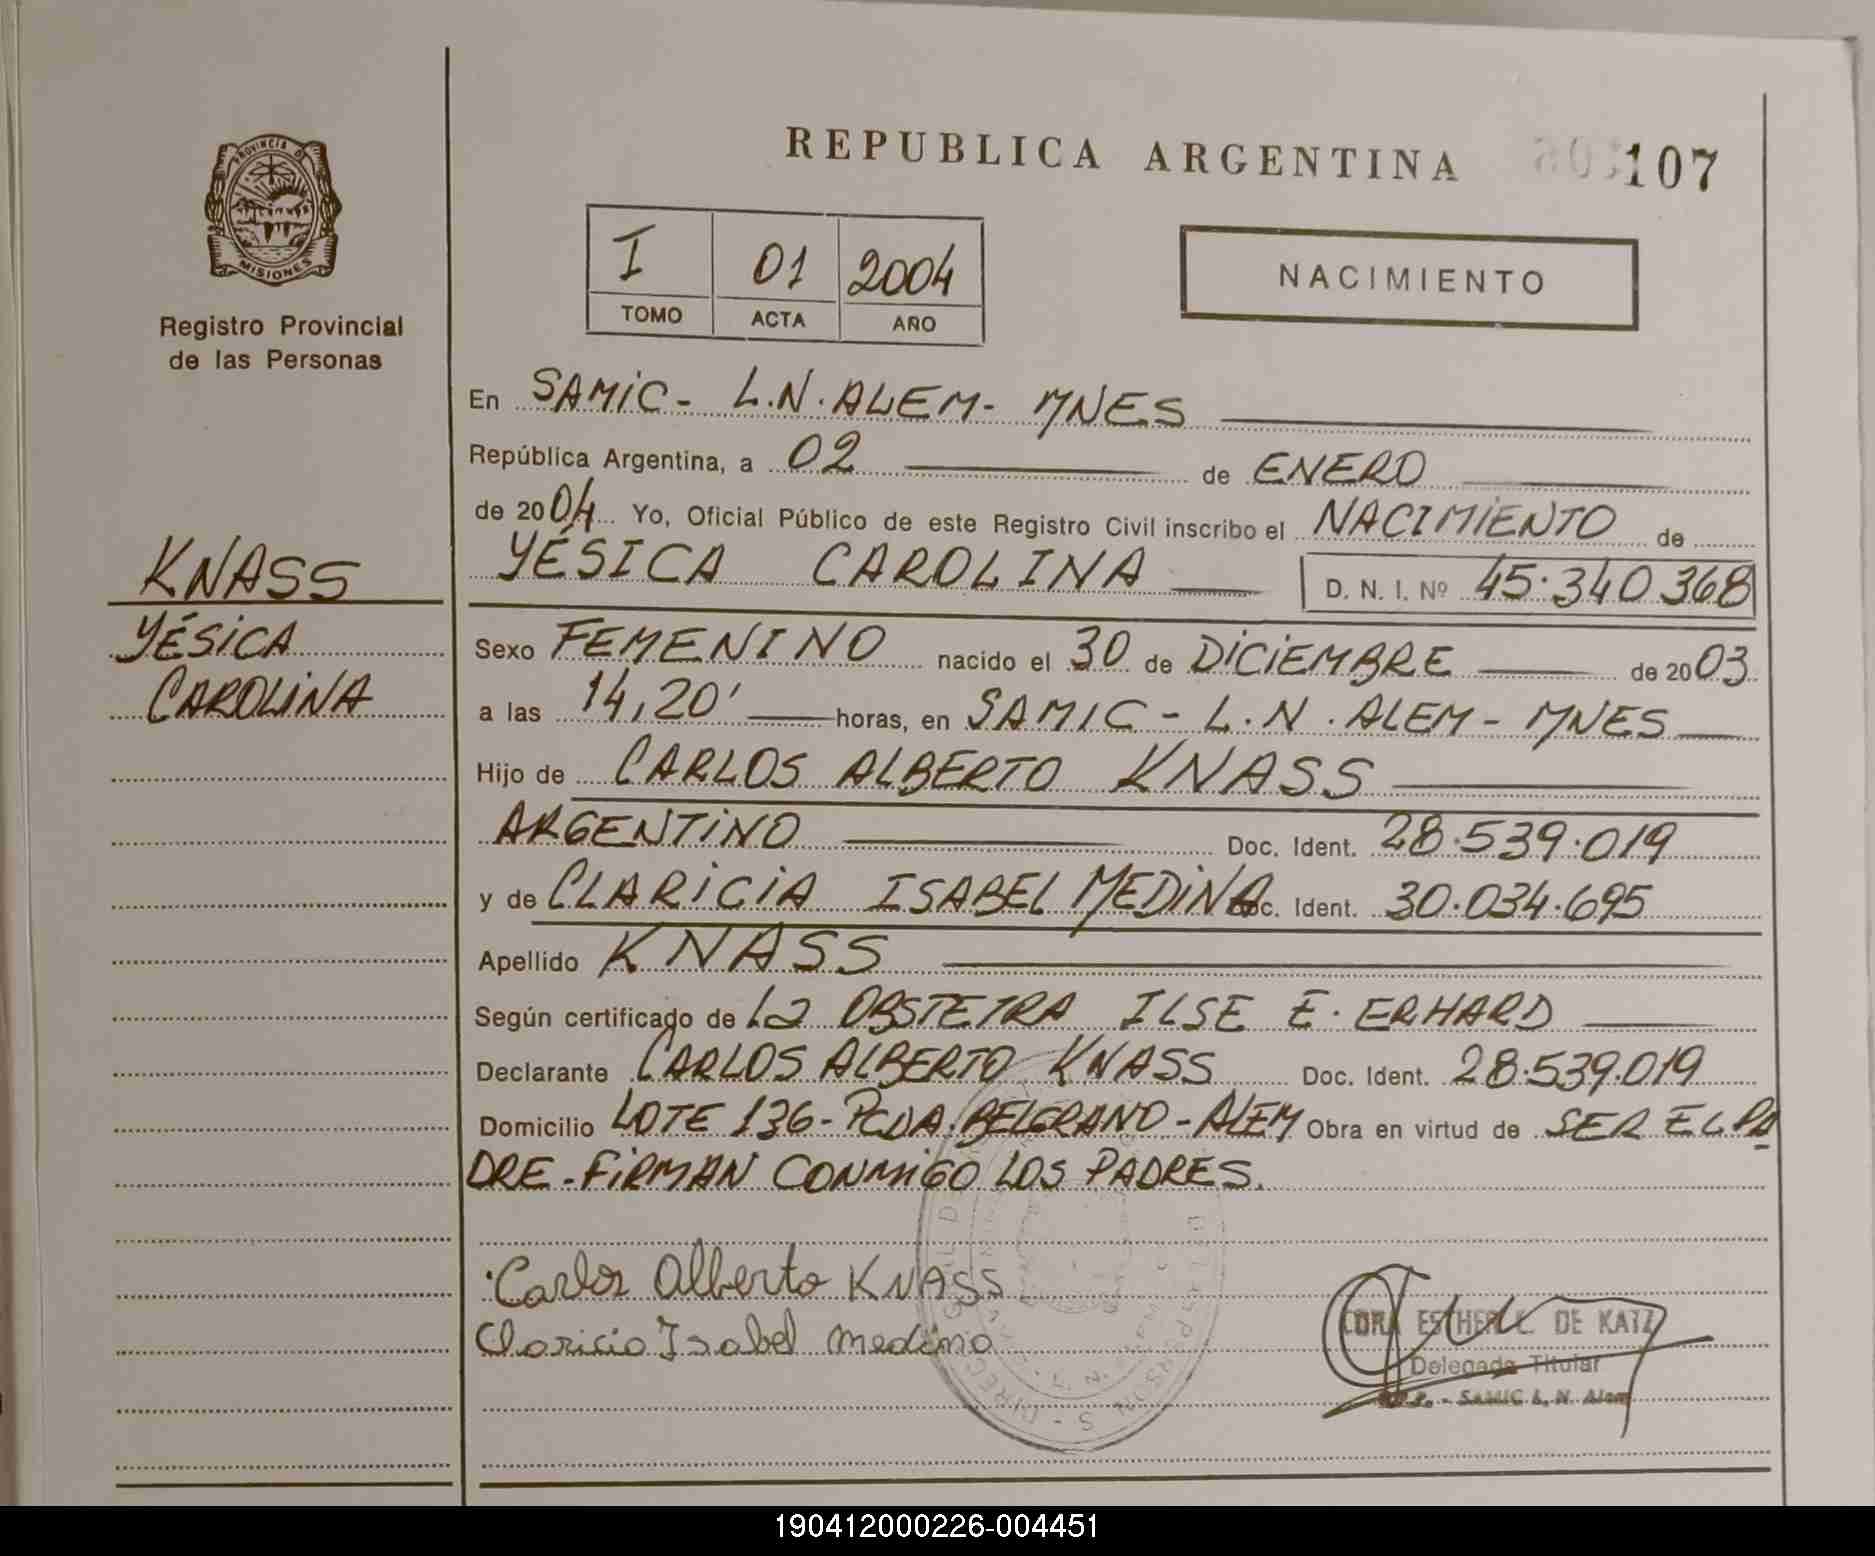 REPUBLICA ARGENTINA
107
PROVINCIA DE
MISIONES
Registro Provincial
de las Personas
I 01 2004
TOMO ACTA AÑO
NACIMIENTO
En SAMIC - L.N. ALEM - MNES
República Argentina, a 02 de ENERO
de 2004 Yo, Oficial Público de este Registro Civil inscribo el NACIMIENTO de
YÉSICA CAROLINA D. N. I. Nº 45.340.368
KNASS
YÉSICA
CAROLINA
Sexo FEMENINO nacido el 30 de DICIEMBRE de 2003
a las 14,20' horas, en SAMIC - L.N. ALEM - MNES
Hijo de CARLOS ALBERTO KNASS
ARGENTINO Doc. Ident. 28.539.019
y de CLARICIA ISABEL MEDINA Doc. Ident. 30.034.695
Apellido KNASS
Según certificado de La OBSTETRA ILSE E. ERHARD
Declarante CARLOS ALBERTO KNASS Doc. Ident. 28.539.019
Domicilio LOTE 136 - PCDA. BELGRANO - ALEM Obra en virtud de SER EL PA
DRE - FIRMAN CONMIGO LOS PADRES.
Carlos Alberto KNASS
Claricia Isabel medina
ESTHER DE KATZ
Delegada Titular
SAMIC L. N. Alem
190412000226-004451